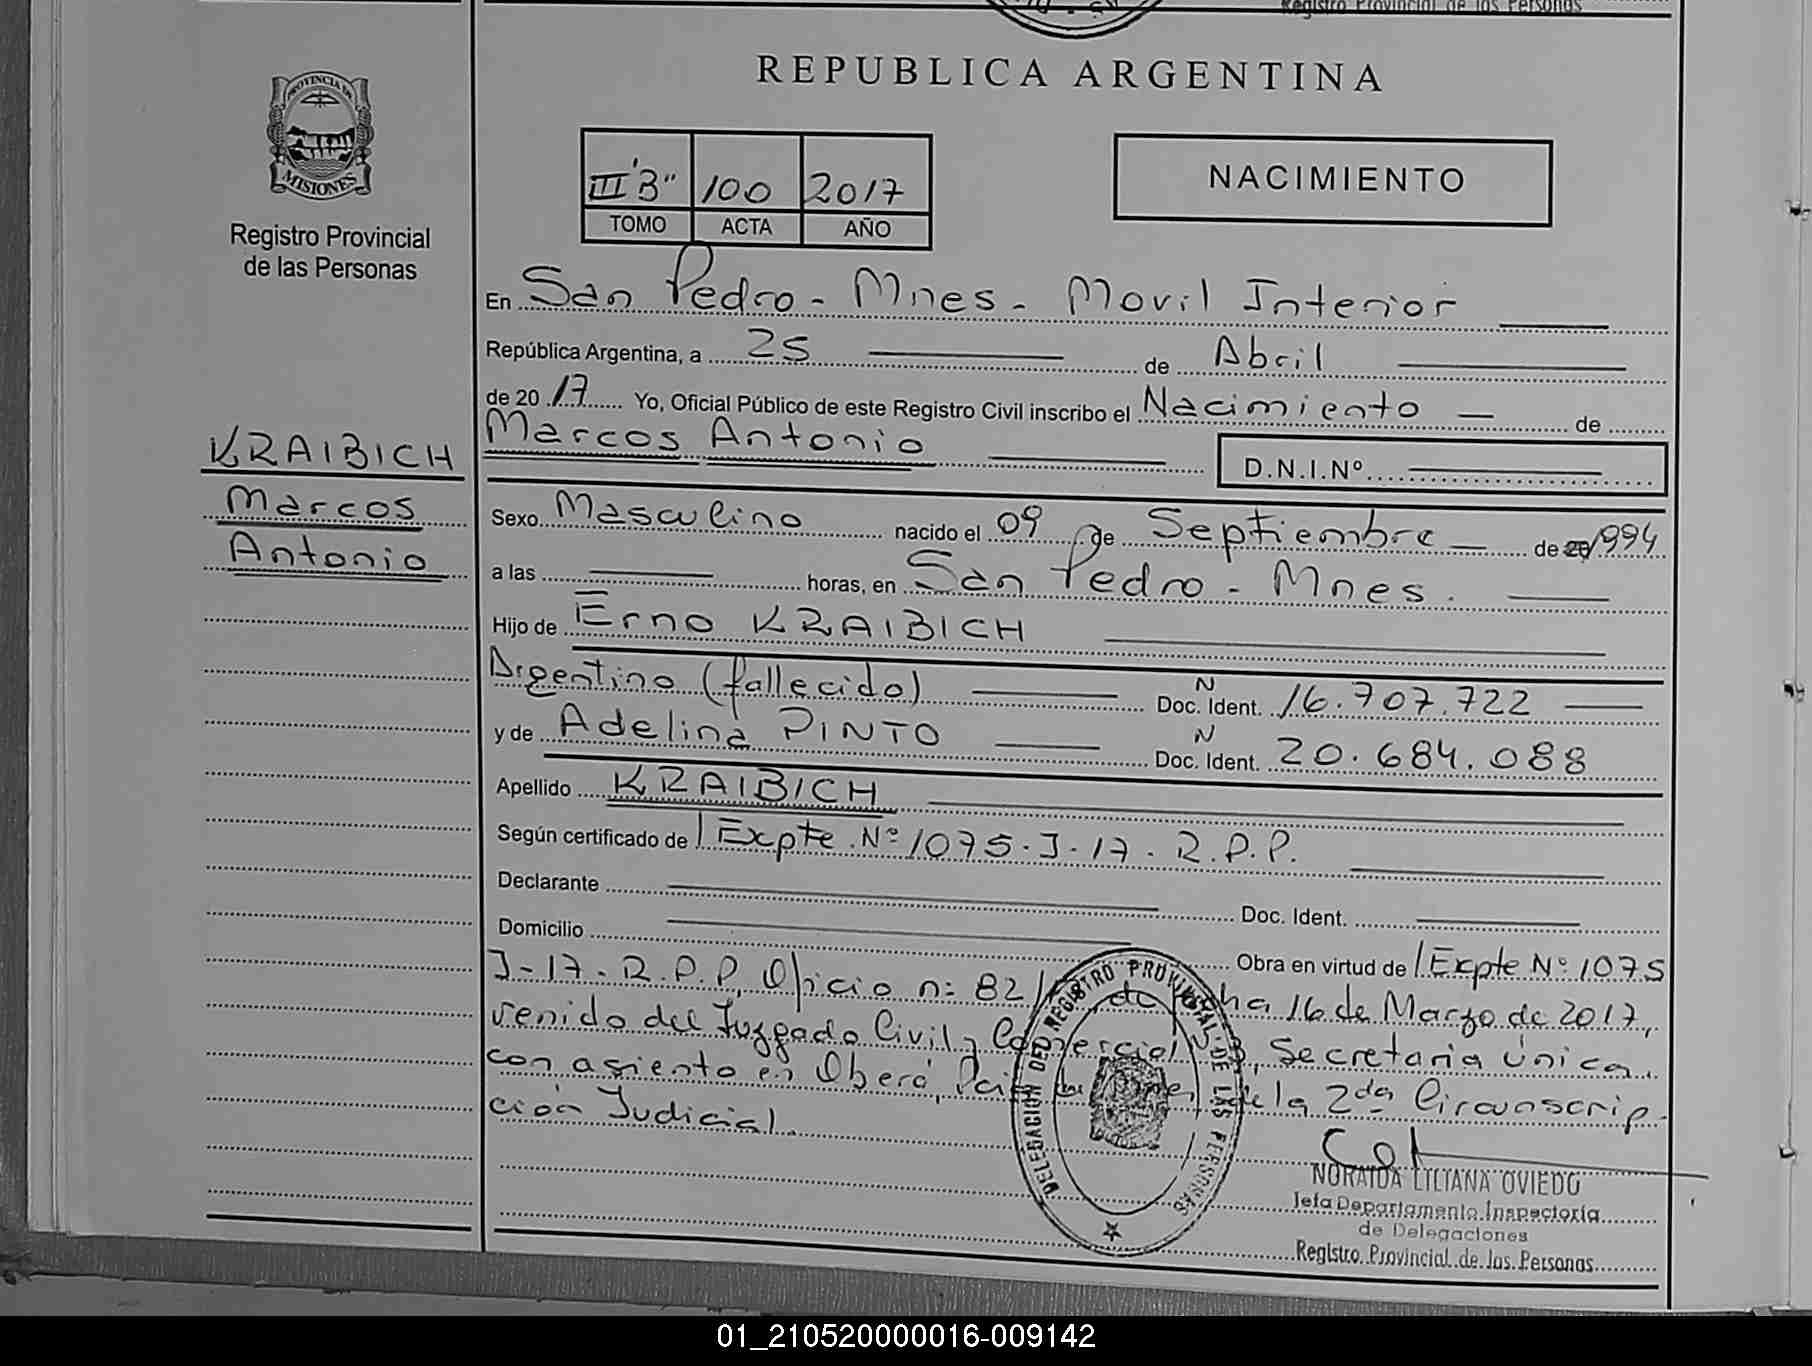 Registro Provincial de las Personas
REPUBLICA ARGENTINA
PROVINCIA DE
MISIONES
Registro Provincial
de las Personas
III "B" 100 2017
TOMO ACTA AÑO
NACIMIENTO
En San Pedro - Mnes - Movil Interior
República Argentina, a 25 de Abril
de 20 17 Yo, Oficial Público de este Registro Civil inscribo el Nacimiento — de
Marcos Antonio
D.N.I.Nº
KRAIBICH
Marcos
Antonio
Sexo Masculino nacido el 09 de Septiembre — de 1994
a las horas, en San Pedro - Mnes.
Hijo de Erno KRAIBICH
Argentino (fallecido) N Doc. Ident. 16.707.722
y de Adelina PINTO N Doc. Ident. 20.684.088
Apellido KRAIBICH
Según certificado de Expte Nº 1075-J-17-R.P.P.
Declarante Doc. Ident.
Domicilio
Obra en virtud de Expte Nº 1075
J-17-R.P.P, Oficio n: 82/ de fecha 16 de Marzo de 2017,
venido del Juzgado Civil y Comercial Secretaria única
con asiento en Oberá, de la 2da Circunscrip-
ción Judicial.
DELEGACION DEL REGISTRO PROVINCIAL DE LAS PERSONAS
NORAIDA LILIANA OVIEDO
Jefa Departamento Inspectoría
de Delegaciones
Registro Provincial de las Personas
01_210520000016-009142